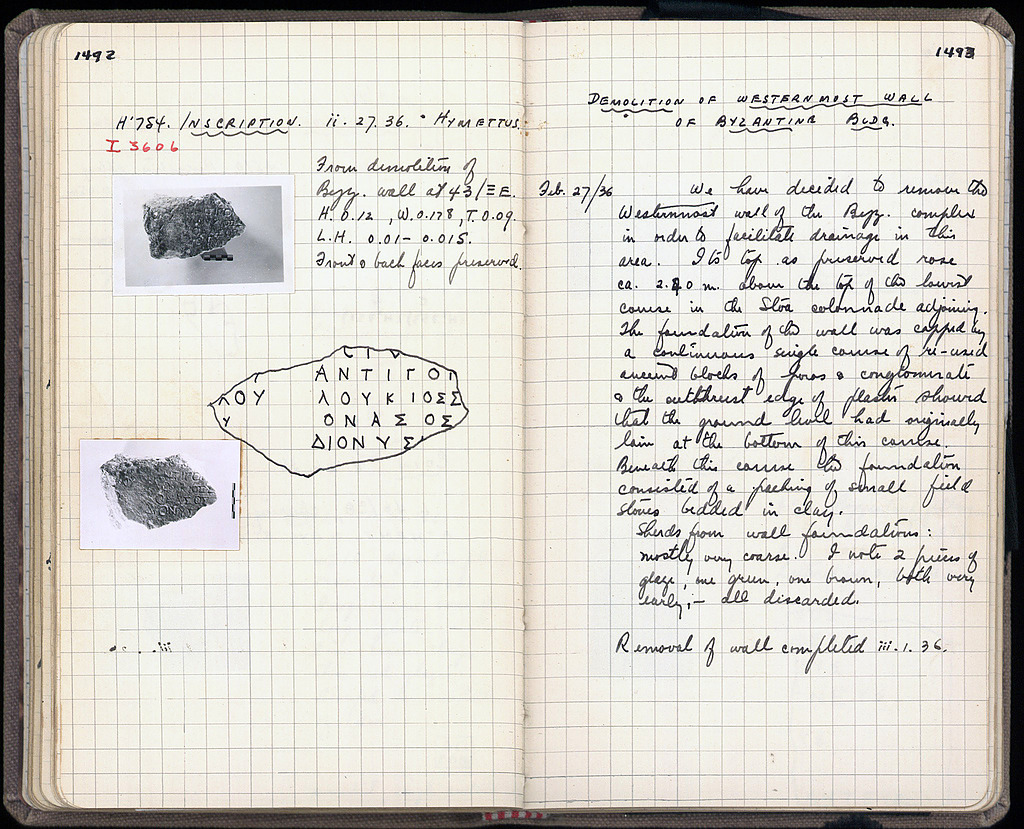 1492
H'754. INSCRIPTION. ii. 27. 36. HYMETTUS.
I 3606
From demolition of
Byz. wall at 43/ΞE.
H. 0.12, W. 0.178, T. 0.09.
L.H. 0.01 – 0.015.
Front & back faces preserved.
ΑΝΤΙΓΟΓ
ΛΟΥ ΛΟΥΚΙΟΣΣ
Υ ΟΝΑΣΟΣ
ΔΙΟΝΥΣ
1493
DEMOLITION OF WESTERNMOST WALL
OF BYZANTINE BLDG.
Feb. 27/36 We have decided to remove the
Westernmost wall of the Byz. complex
in order to facilitate drainage in this
area. Its top as preserved rose
ca. 2.20 m. above the top of the lowest
course in the Stoa colonnade adjoining.
The foundation of the wall was capped by
a continuous single course of re-used
ancient blocks of poros & conglomerate
& the outthrust edge of plaster showed
that the ground level had originally
lain at the bottom of this course.
Beneath this course the foundation
consisted of a packing of small field
stones bedded in clay.
Sherds from wall foundations:
mostly very coarse. I note 2 pieces of
glaze, one green, one brown, both very
early; – all discarded.
Removal of wall completed iii. 1. 36.